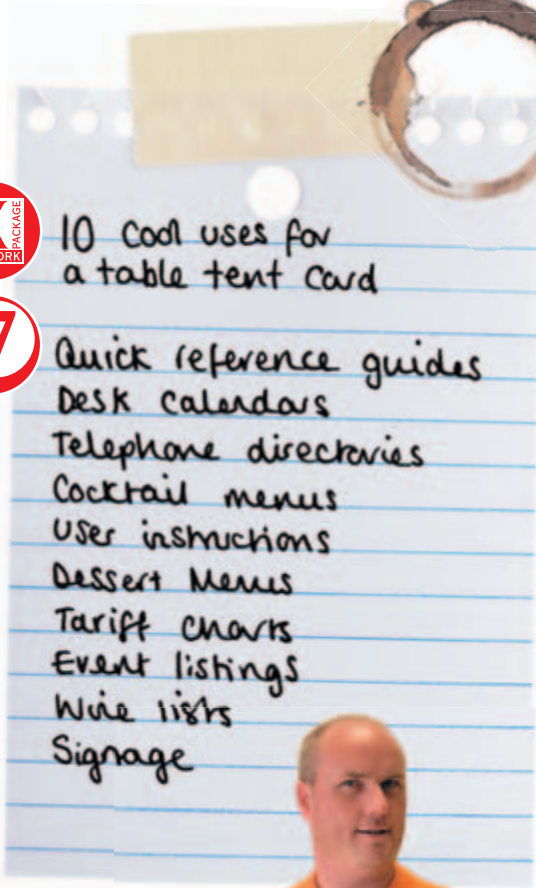 10 cool uses for
a table tent card
PACKAGE
7
Quick reference guides
Desk calendars
Telephone directories
Cocktail menus
User instructions
Dessert Menus
Tariff charts
Event listings
Wine lists
Signage